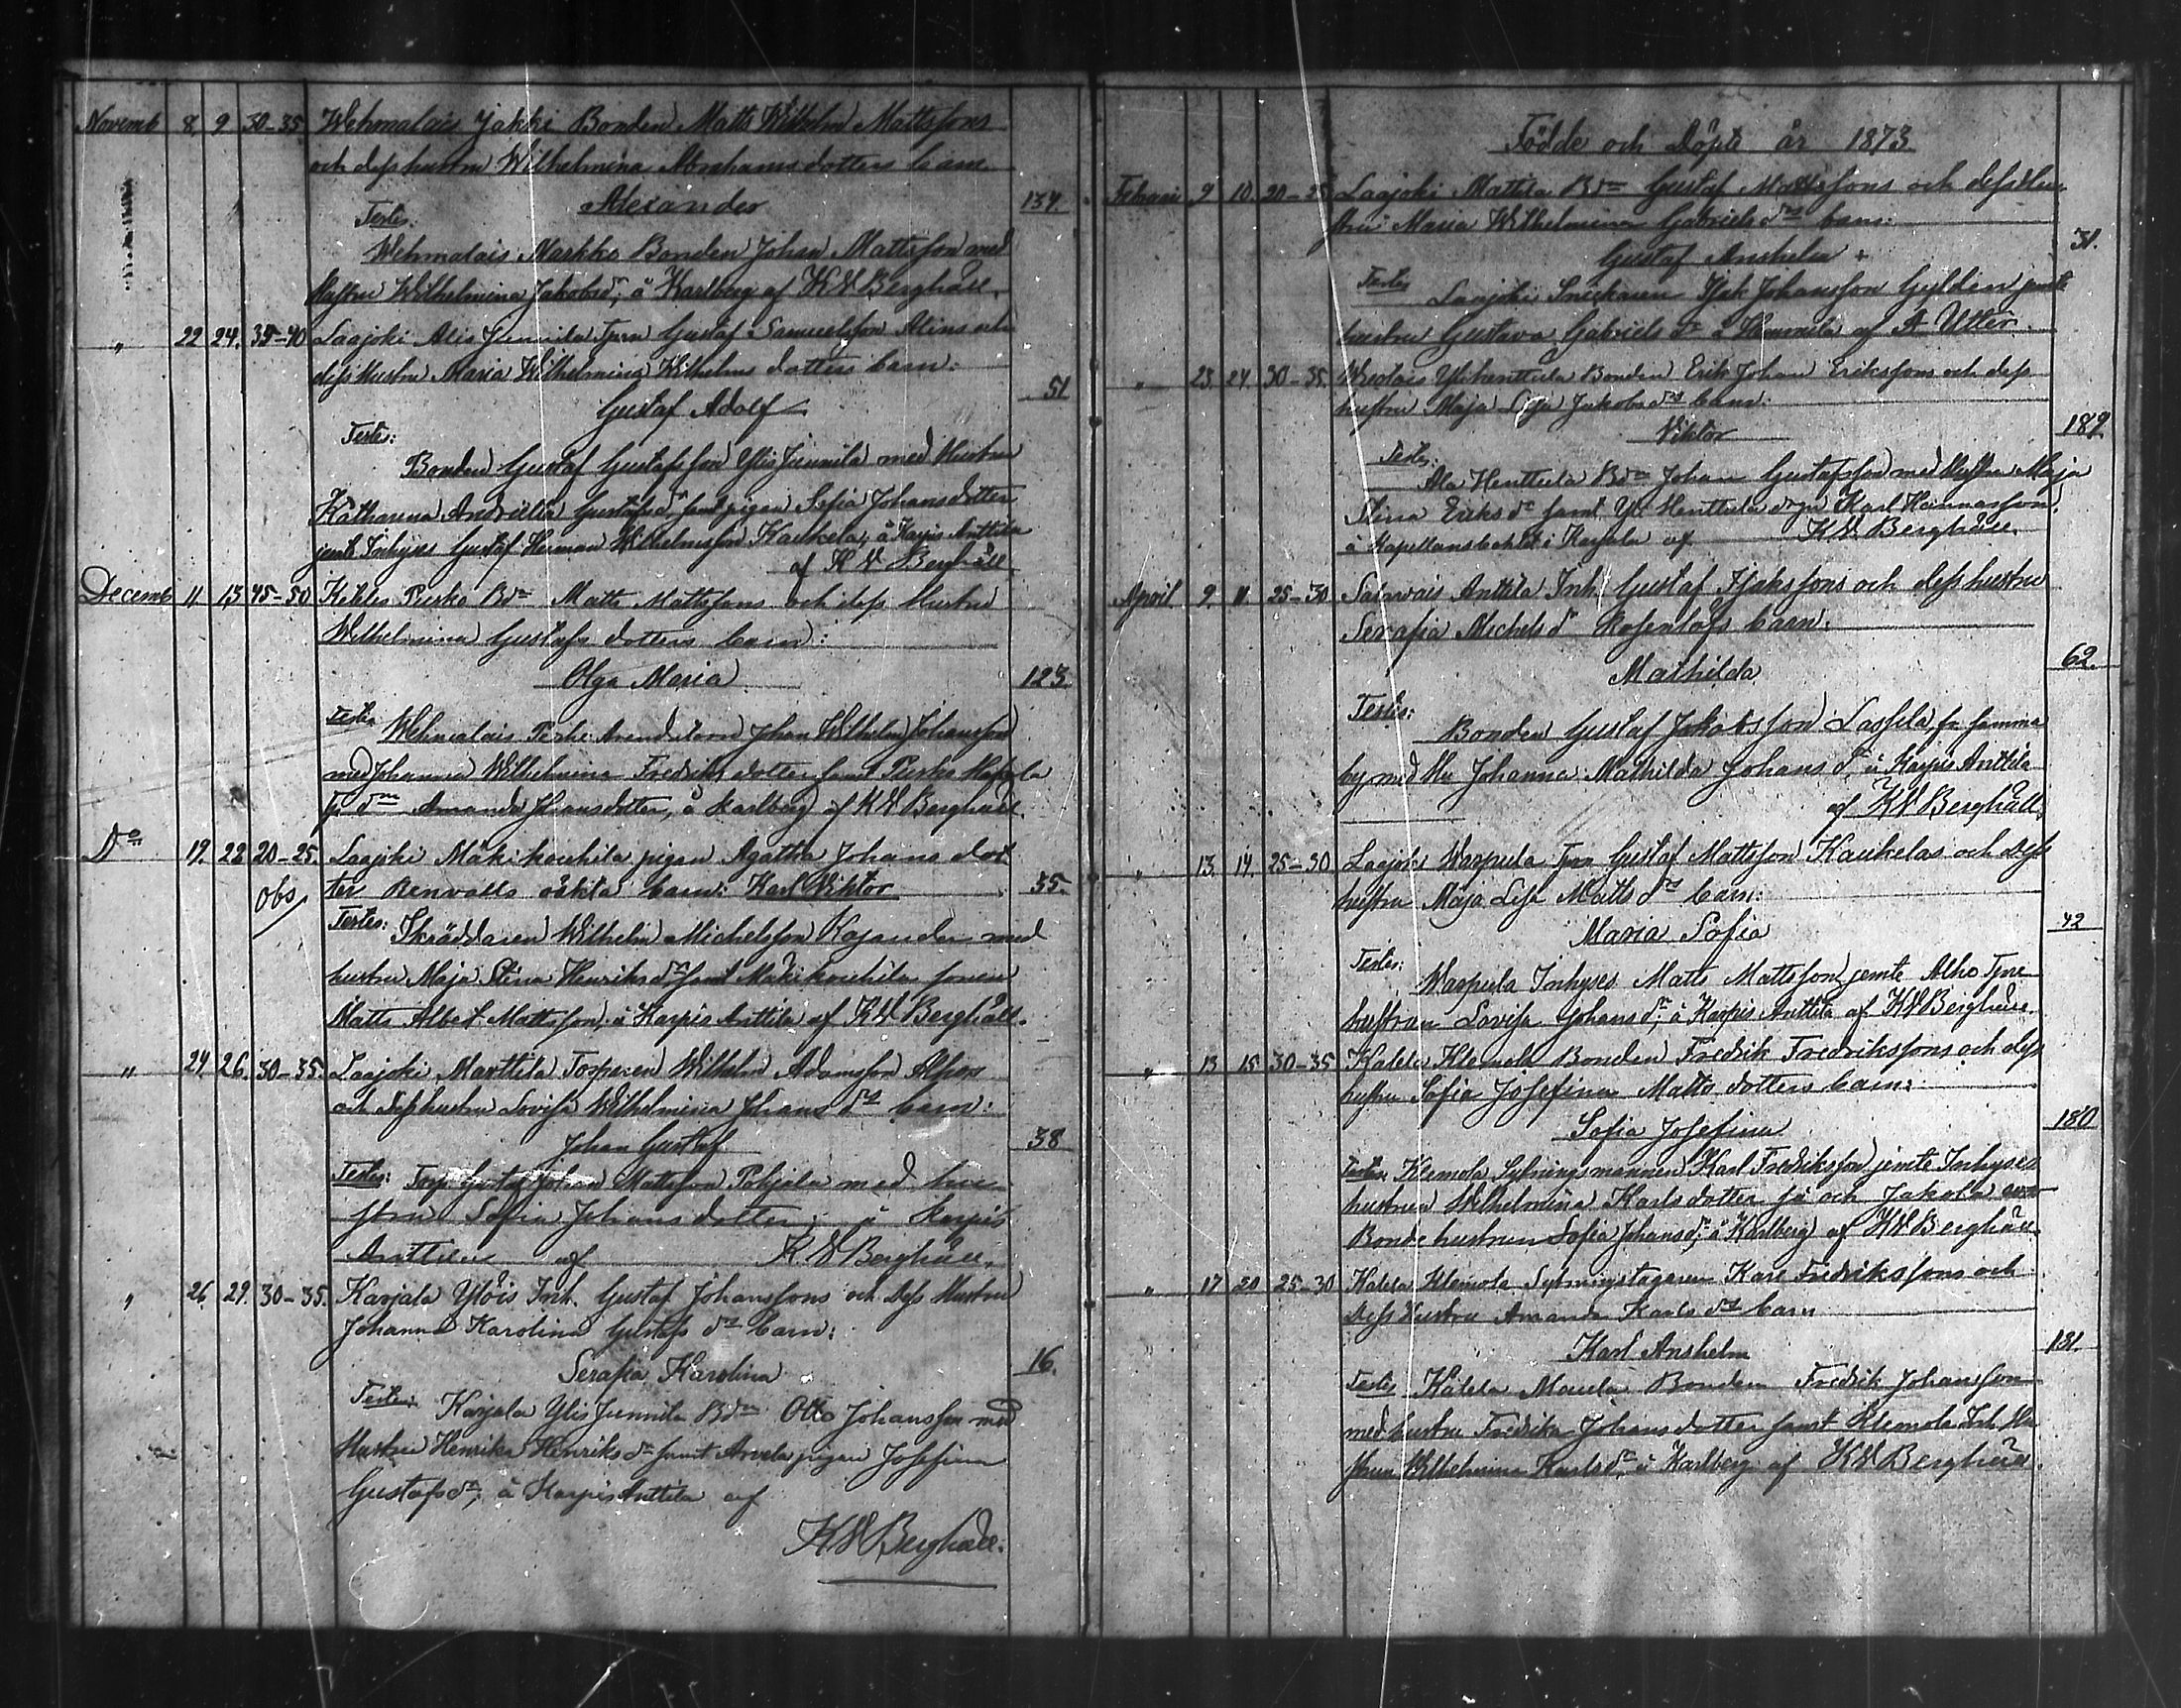 Novemb 8 9 30-35 Wehmalais Jakki Bonden Matts Wilhelm Mattssons
och dess hustru Wilhelmina Abrahams dotters barn
Alexander 134.
Testes:
Wehmalais Markko Bonden Johan Mattsson med
hustru Wilhelmina Jakobsdr, å Karlberg af KW Berghäll.
" 22 24. 35-40 Laajoki Alis Junnila Gustaf Samuelsson och
dess hustru Maria Wilhelmina Wilhelms dotters barn:
Gustaf Adolf 51
Testes:
Bonden Gustaf Gustafsson Ylis Junnila med Hustru
Katharina Gustafsdr samt pigan Sofia Johansdotter
jemte Inhyses Gustaf Herman Wilhelmsson Kaukela, å Karpis Anttila
af KW Berghäll
Decemb 11 15 45-50 Pusko Bdn Matts Mattssons och dess Hustru
Wilhelmina Gustafs dotters barn:
Olga Maria 123
Testes Wehmalais Johan Wilhelm Johansson
med Johanna Wilhelmina Fredriks dotter samt Pusko
Amanda Johansdotter, å Karlberg af KW Berghäll.
Do 19. 22 20-25. Laajoki Mäkikouhila pigan Agatha Johans dot
obs/ ter Renvalls oäkta barn: Karl Viktor 35.
Testes: Skräddaren Wilhelm Michelsson Kajander med
hustru Maja Stina Henriksdr samt Mäkikouhila sonen
Matts Albert Mattsson, å Karpis Anttila af KW Berghäll.
" 24. 26. 30-35. Laajoki Marttila Torparen Wilhelm Adamsson
och dess hustru Lovisa Wilhelmina Johans drs barn:
Johan Gustaf 38
Testes: Torp Gustaf Johan Mattsson Pohjala med hu-
stru Sofia Johans dotter, å Karpis
Anttila af KW Berghäll.
" 26. 29. 30-35. Karjala Ylöis Inh. Gustaf Johanssons och dess Hustru
Johanna Karolina Gustafs drs barn:
Serafia Karolina 16.
Testes: Karjala Ylis Junnila Bdn Otto Johansson med
Hustru Henrika Henriksdr samt Arvela pigan Josefina
Gustafsdr, å Karpis Anttila af
KW Berghäll.
Födde och Döpte år 1873
Februari 9 10. 20-25 Laajoki Mattila Bdn Gustaf Mattssons och dess Hu
stru Maria Wilhelmina Gabriels drs barn:
Gustaf Anshelm + 31.
Testes Laajoki Snickaren Isak Johansson Gylden jemte
hustru Gustava Gabriels dr å Hummila af A Uttér.
" 23. 24. 30-35. Ylihenttula Bonden Erik Johan Erikssons och dess
hustru Maja Lisa Jakobs drs barn:
Viktor 189.
Testes:
Ala Henttula Bdn Johan Gustafsson med Hustru Maja
Stina Eriks dr samt Yli Henttula Karl
å Kapellansbohlet i Karjala af KW Berghäll.
April 9. 11. 25-30 Salavais Anttila Inh. Gustaf Isakssons och dess hustru
Serafia Michels dr Rosenlöfs barn:
Mathilda 62.
Testes:
Bonden Gustaf Jakobsson Lassila, fr. samma
by med Hu Johanna Mathilda Johans dr, å Karpis Anttila
af KW Berghäll.
" 13. 14. 25-30 Laajoki Warpula Gustaf Mattsson Kaukelas och dess
hustru Maja Lisa Matts drs barn:
Maria Sofia 42
Testes:
Warpula Inhyses Matts Mattsson jemte Alho
hustrun Lovisa Johans dr, å Karpis Anttila af KW Berghäll.
" 13 15 30-35 Kalela Klemola Bonden Fredrik Fredrikssons och dess
hustru Sofia Josefina Matts dotters barn:
Sofia Josefina 180
Testes Klemola Sytningsmannen Karl Fredriksson jemte Inhyses
hustrun Wilhelmina Karls dotter och Jakola
Bonde hustrun Sofia Johansdr, å Karlberg af KW Berghäll.
" 17 20 25-30 Kalela Klemola Sytningstagaren Karl Fredrikssons och
dess hustru Amanda Karls drs barn
Karl Anshelm 181.
Testes Kalela Bonden Fredrik Johansson
med hustru Fredrika Johans dotter samt Klemola Inh Hu
strun Wilhelmina Karlsdr, å Karlberg af KW Berghäll.